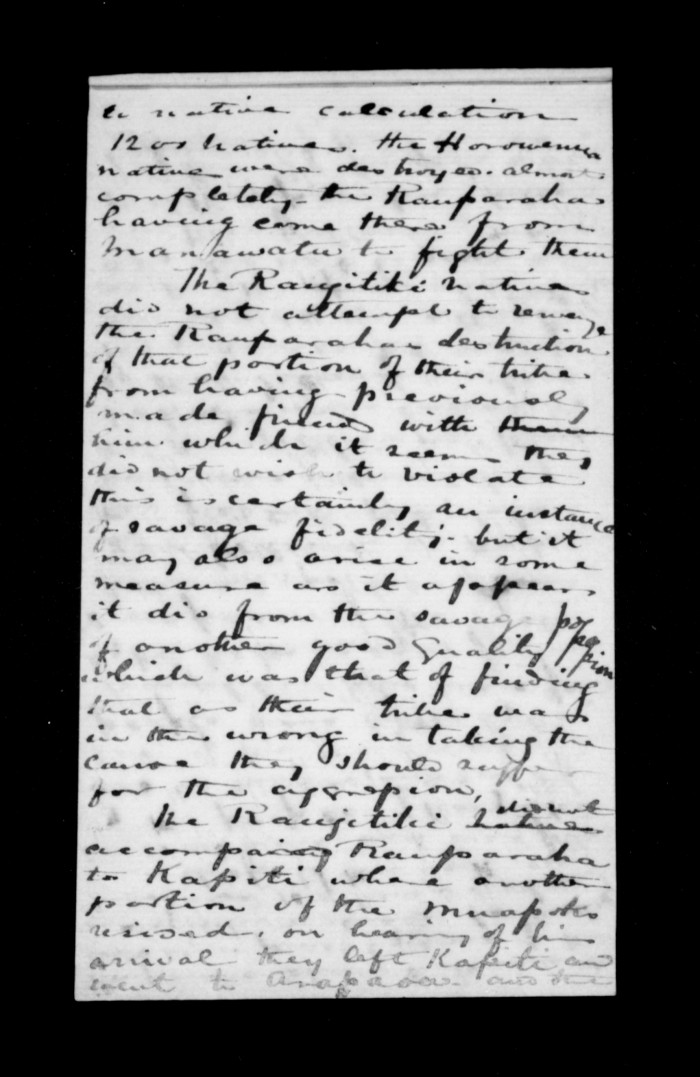 to native calculation
12 os Natives. the Horowenua
natives were destroyed almost
completely the Rauparaha
having come there from
Manawatu to fight them
The Rangitiki natives
did not attempt to revenge
the Rauparahas destruction
of that portion of their tribe
from having previously
made friends with them
him which it seems they
did not wish to violate
this is certainly an instance
of savage fidelity. but it
may also arise in some
measure as it appears
it did from the savage possession
of another good quality
which was that of finding
that as their tribe was
in the wrong in taking the
canoe they should suffer
for the aggression,
The Rangitiki natives did not
accompany Rauparaha
to Kapiti where another
portion of the Muapoko
resised. on hearing of his
arrival they left Kapiti and
went to Arapaoa and the